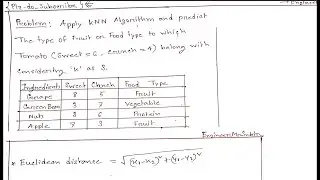 Pls do Subscribe
Problem: Apply KNN Algorithm and predict
The type of Fruit or Food type to which
Tomato (Sweet = 6, Crunch = 4) belong with
Considering 'K' as 3.
Ingredients Sweet Crunch Food Type
Grape 8 5 Fruit
Green Bean 3 7 Vegetable
Nuts 3 6 Protein
Apple 7 3 Fruit
* Euclidean distance = √(x₁-x₂)² + (y₁-y₂)²